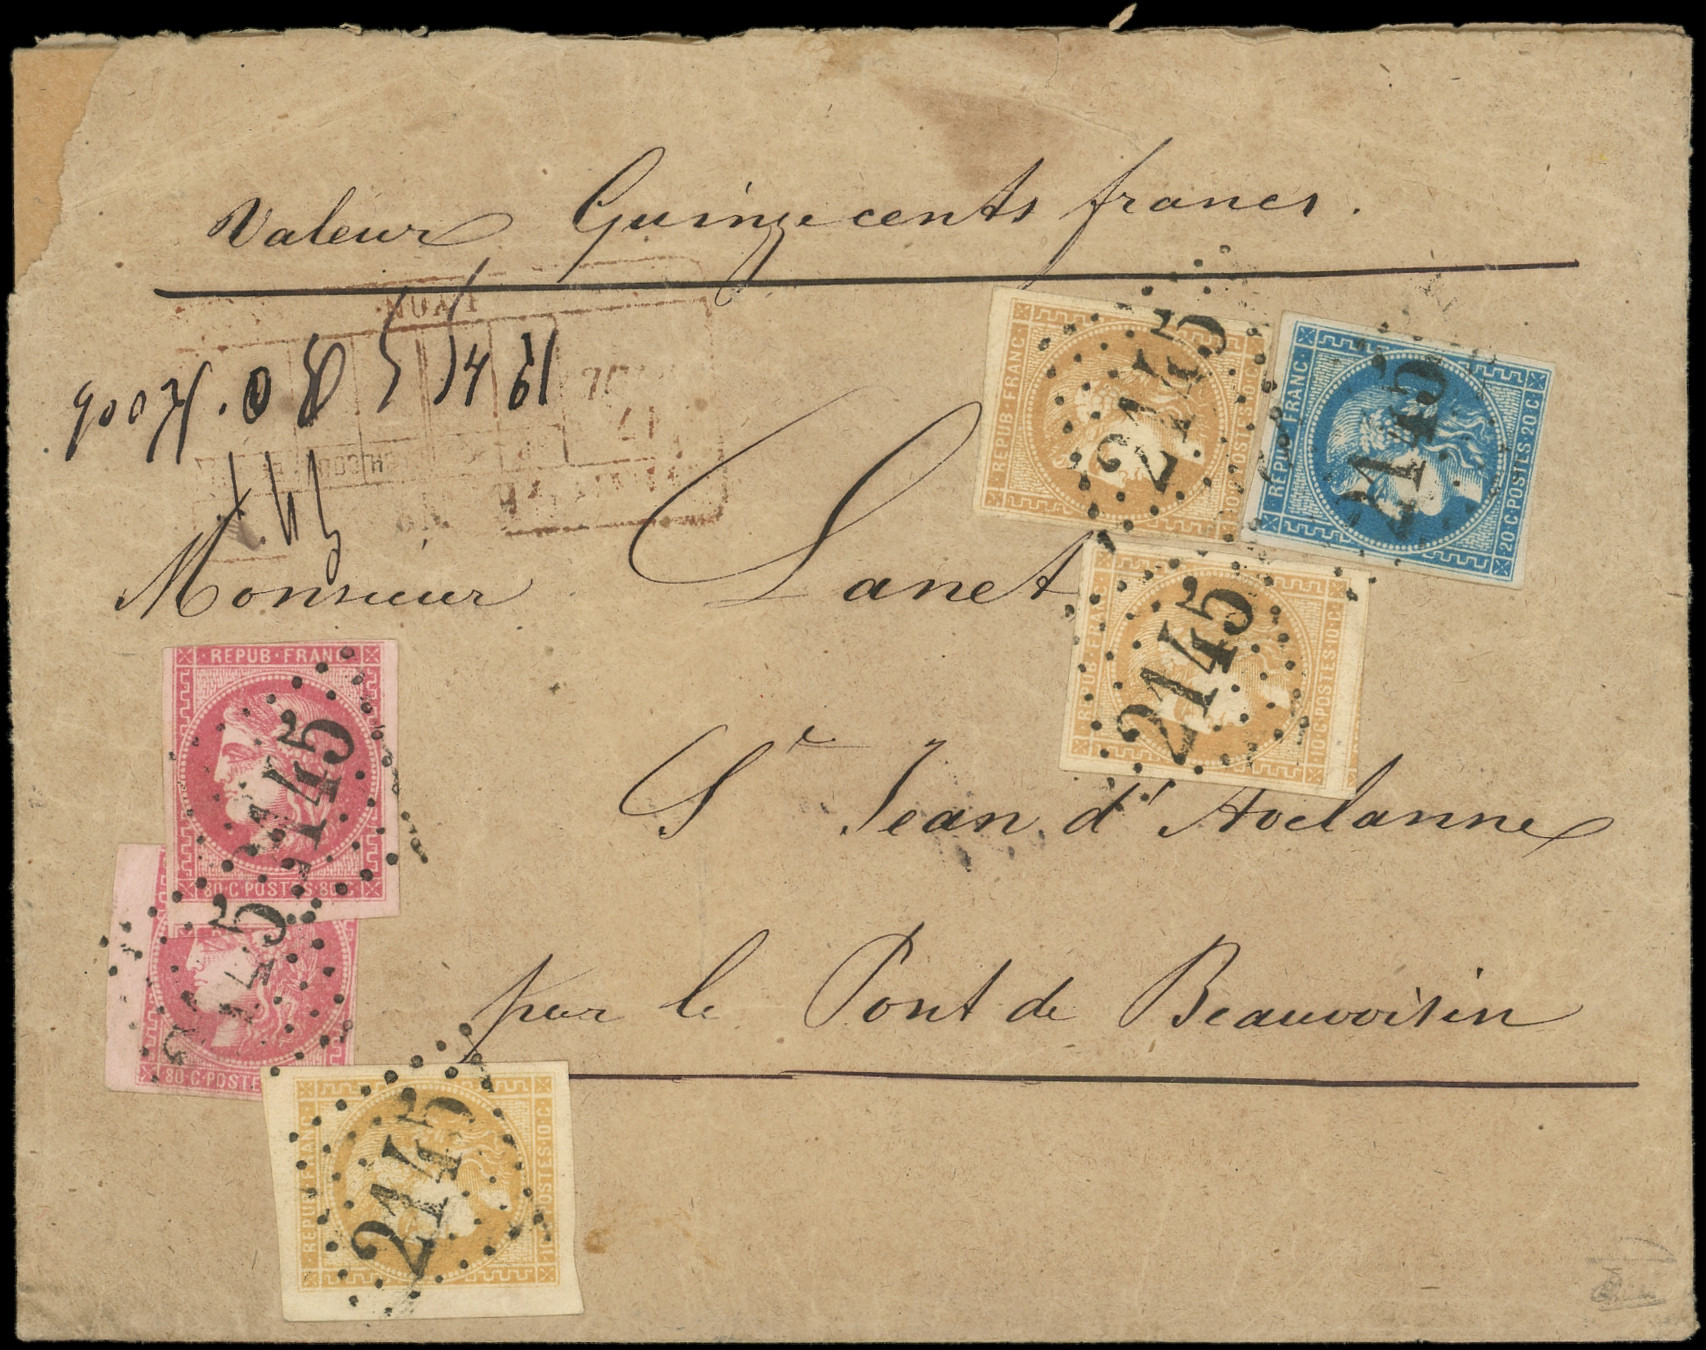 Valeur Quinze cents francs.
LYON
Monsieur Lanet
St Jean d'Avelanne
par le Pont de Beauvoisin
REPUB FRANC
10·C·POSTES·10·C
2145
REPUB FRANC
20·C·POSTES 20 C
2145
REPUB FRANC
10·C·POSTES·10·C
2145
REPUB·FRANC
80·C·POSTES·80·C
2145
80·C·POSTE
2145
REPUB FRANC
10·C·POSTES·10·C
2145